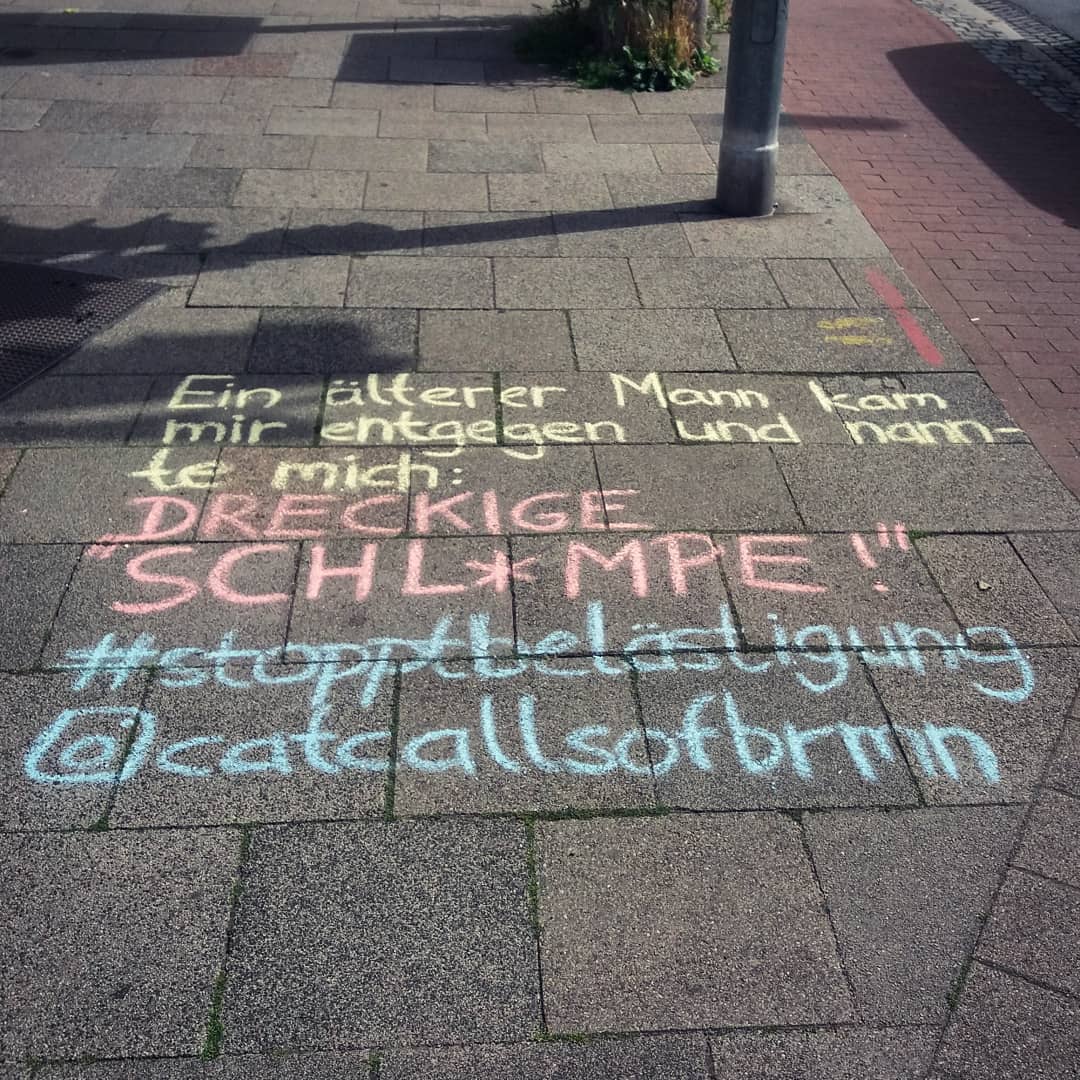 Ein älterer Mann kam
mir entgegen und nann-
te mich:
DRECKIGE
"SCHL*MPE!"
#stopptbelästigung
@catcallsofbrmn